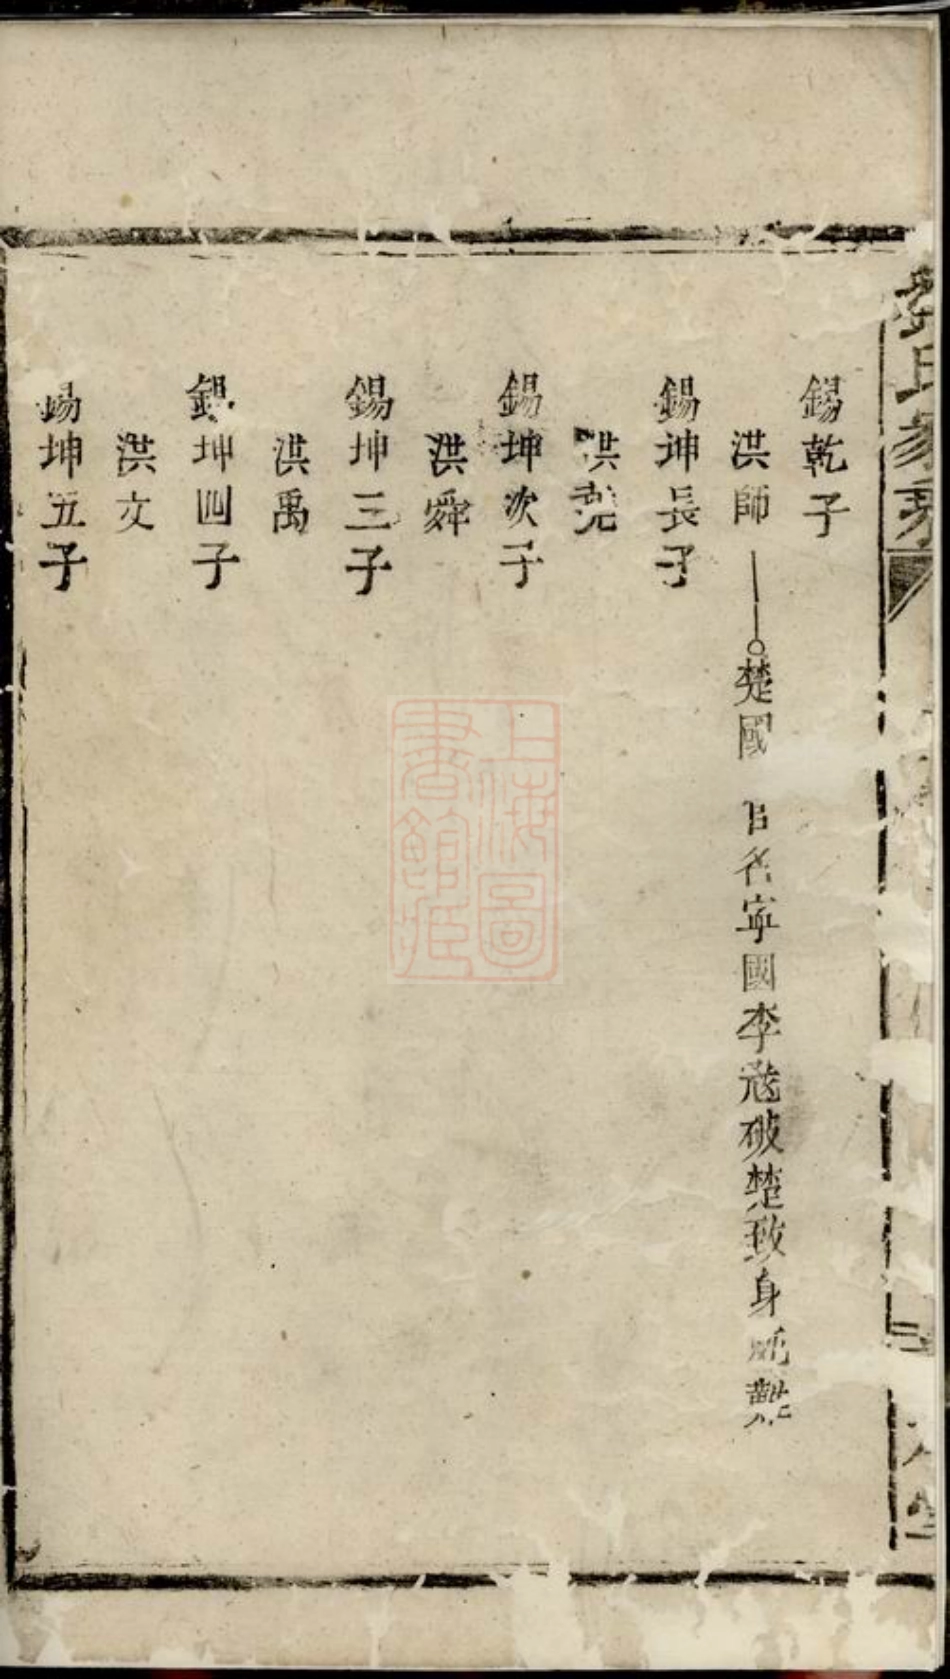 錫乾子
洪師
楚國 官名寧國李寇破楚致身死難
錫坤長子
洪堯
錫坤次子
洪舜
錫坤三子
洪禹
錫坤四子
洪文
錫坤五子
上海圖
書館藏
氏家乘